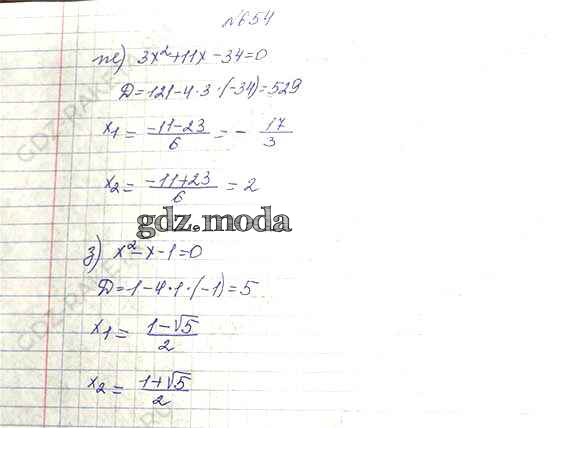 №654
ж) 3x²+11x-34=0
D=121-4·3·(-34)=529
x₁ = -11-23/6 = - 17/3
x₂ = -11+23/6 = 2
gdz.moda
з) x²-x-1=0
D=1-4·1·(-1)=5
x₁ = 1-√5/2
x₂ = 1+√5/2